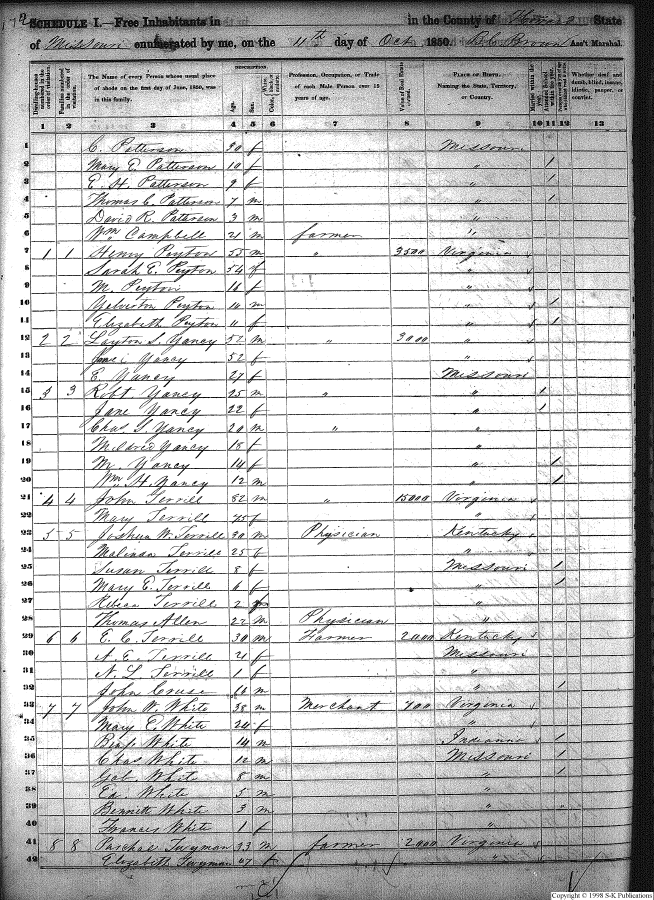 SCHEDULE I.—Free Inhabitants in in the County of State
of Missouri enumerated by me, on the 11th day of Oct 1850. Brown Ass't Marshal.
DESCRIPTION.
Dwelling-houses numbered in the order of visitation.
Families numbered in the order of visitation.
The Name of every Person whose usual place of abode on the first day of June, 1850, was in this family.
Age.
Sex.
Color, White, black or mulatto.
Profession, Occupation, or Trade of each Male Person over 15 years of age.
Value of Real Estate owned.
PLACE OF BIRTH. Naming the State, Territory, or Country.
Married within the year.
Attended School within the year.
Whether deaf and dumb, blind, insane, idiotic, pauper, or convict.
1 2 3 4 5 6 7 8 9 10 11 12 13
1 C. Patterson 30 f Missouri
2 Mary E. Patterson 10 f " 1
3 E. H. Patterson 9 f " 1
4 Thomas C. Patterson 7 m " 1
5 David R. Paterson 3 m "
6 Wm Campbell 21 m farmer "
7 1 1 Henry Peyton 55 m " 3500 Virginia
8 Sarah E. Peyton 54 f "
9 M. Peyton 16 f "
10 Peyton 14 m " 1
11 Elizabeth Peyton 11 f " 1
12 2 2 Layton S. Yancy 52 m " 3000 "
13 Yancy 52 f "
14 E. Yancy 27 f Missouri
15 3 3 Robt Yancy 25 m " " 1
16 Jane Yancy 22 f " 1
17 Chas S. Yancy 20 m " "
18 Mildred Yancy 18 f "
19 M. Yancy 14 f " 1
20 Wm H. Yancy 12 m " 1
21 4 4 John Terrill 82 m " 15000 Virginia
22 Mary Terrill 75 f "
23 5 5 Joshua W. Terrill 30 m Physician Kentucky
24 Malinda Terrill 25 f "
25 Susan Terrill 8 f Missouri 1
26 Mary E. Terrill 6 f " 1
27 Terrill 2 "
28 Thomas Allen 22 m Physician "
29 6 6 E. C. Terrill 30 m Farmer 2000 Kentucky
30 N. E. Terrill 21 f Missouri
31 N. L. Terrill 1 f "
32 John Cruse m " 1
33 7 7 John W. White 38 m Merchant 700 Virginia
34 Mary E. White 24 f "
35 Benj. White 14 m Indiana 1
36 Chas White 12 m Missouri 1
37 Gab White 8 m " 1
38 Ed White 5 m "
39 Bennett White 3 m " "
40 Frances White 1 f "
41 8 8 Paschal Twyman 53 m farmer 2000 Virginia
42 Elizabeth Twyman 47 f "
Copyright © 1998 S-K Publications